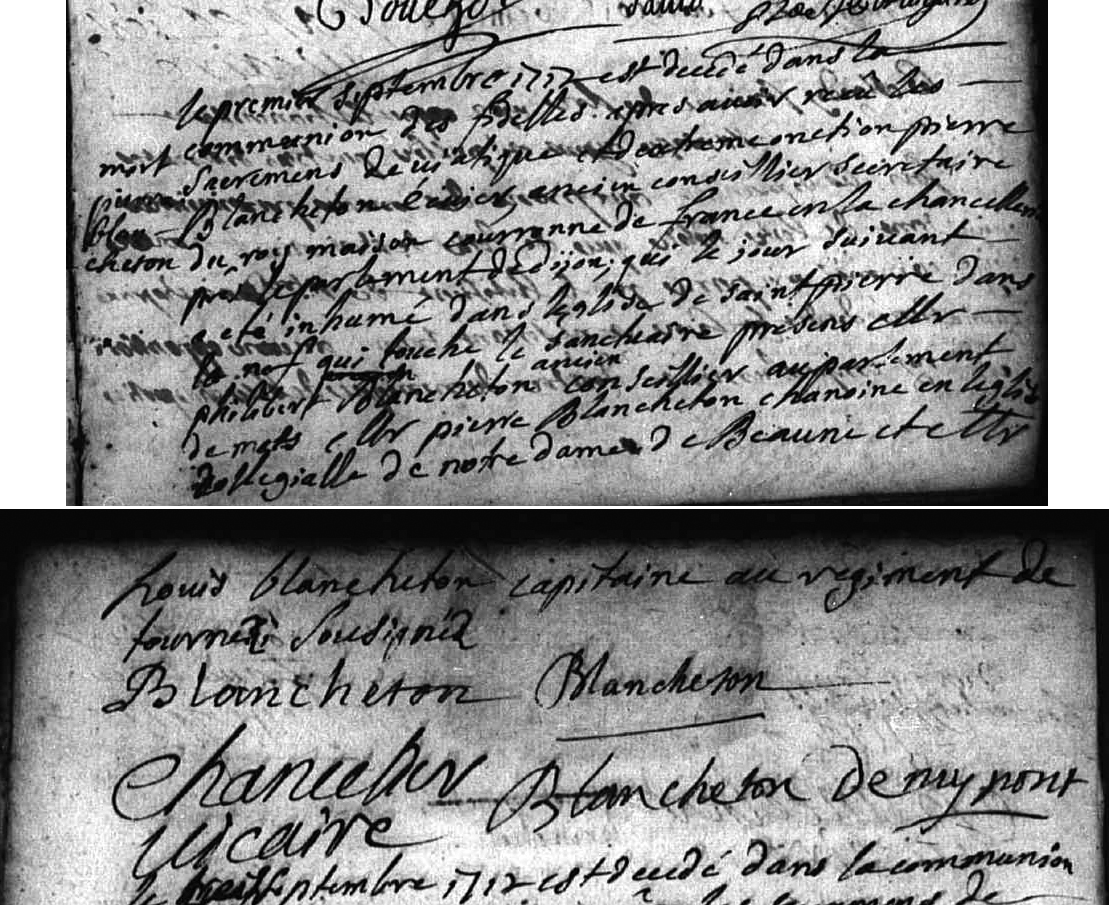 le premier septembre 1712 est decedé dans la
communion des fidelles apres avoir receu les
mort
sacremens de viatique et dextreme onction pierre
pierre
Blancheton ecuier, ancien conseillier secretaire
blan
du roy maison couronne de france en la chancellerie
cheton
pres le parlement de dijon, qui le jour suivant
a eté inhumé dans leglise de saint pierre dans
la nef qui touche le sanctuaire presens Mr
philibert Blancheton ancien conseillier au parlement
de mets Mr pierre Blancheton chanoine en leglise
collegialle de notre dame de Beaune et Mr
Louis blancheton capitaine au regiment de
sousignéz
Blancheton Blancheton
Chancellier Blancheton Demypont
vicaire
le septembre 1712 est decedé dans la communion